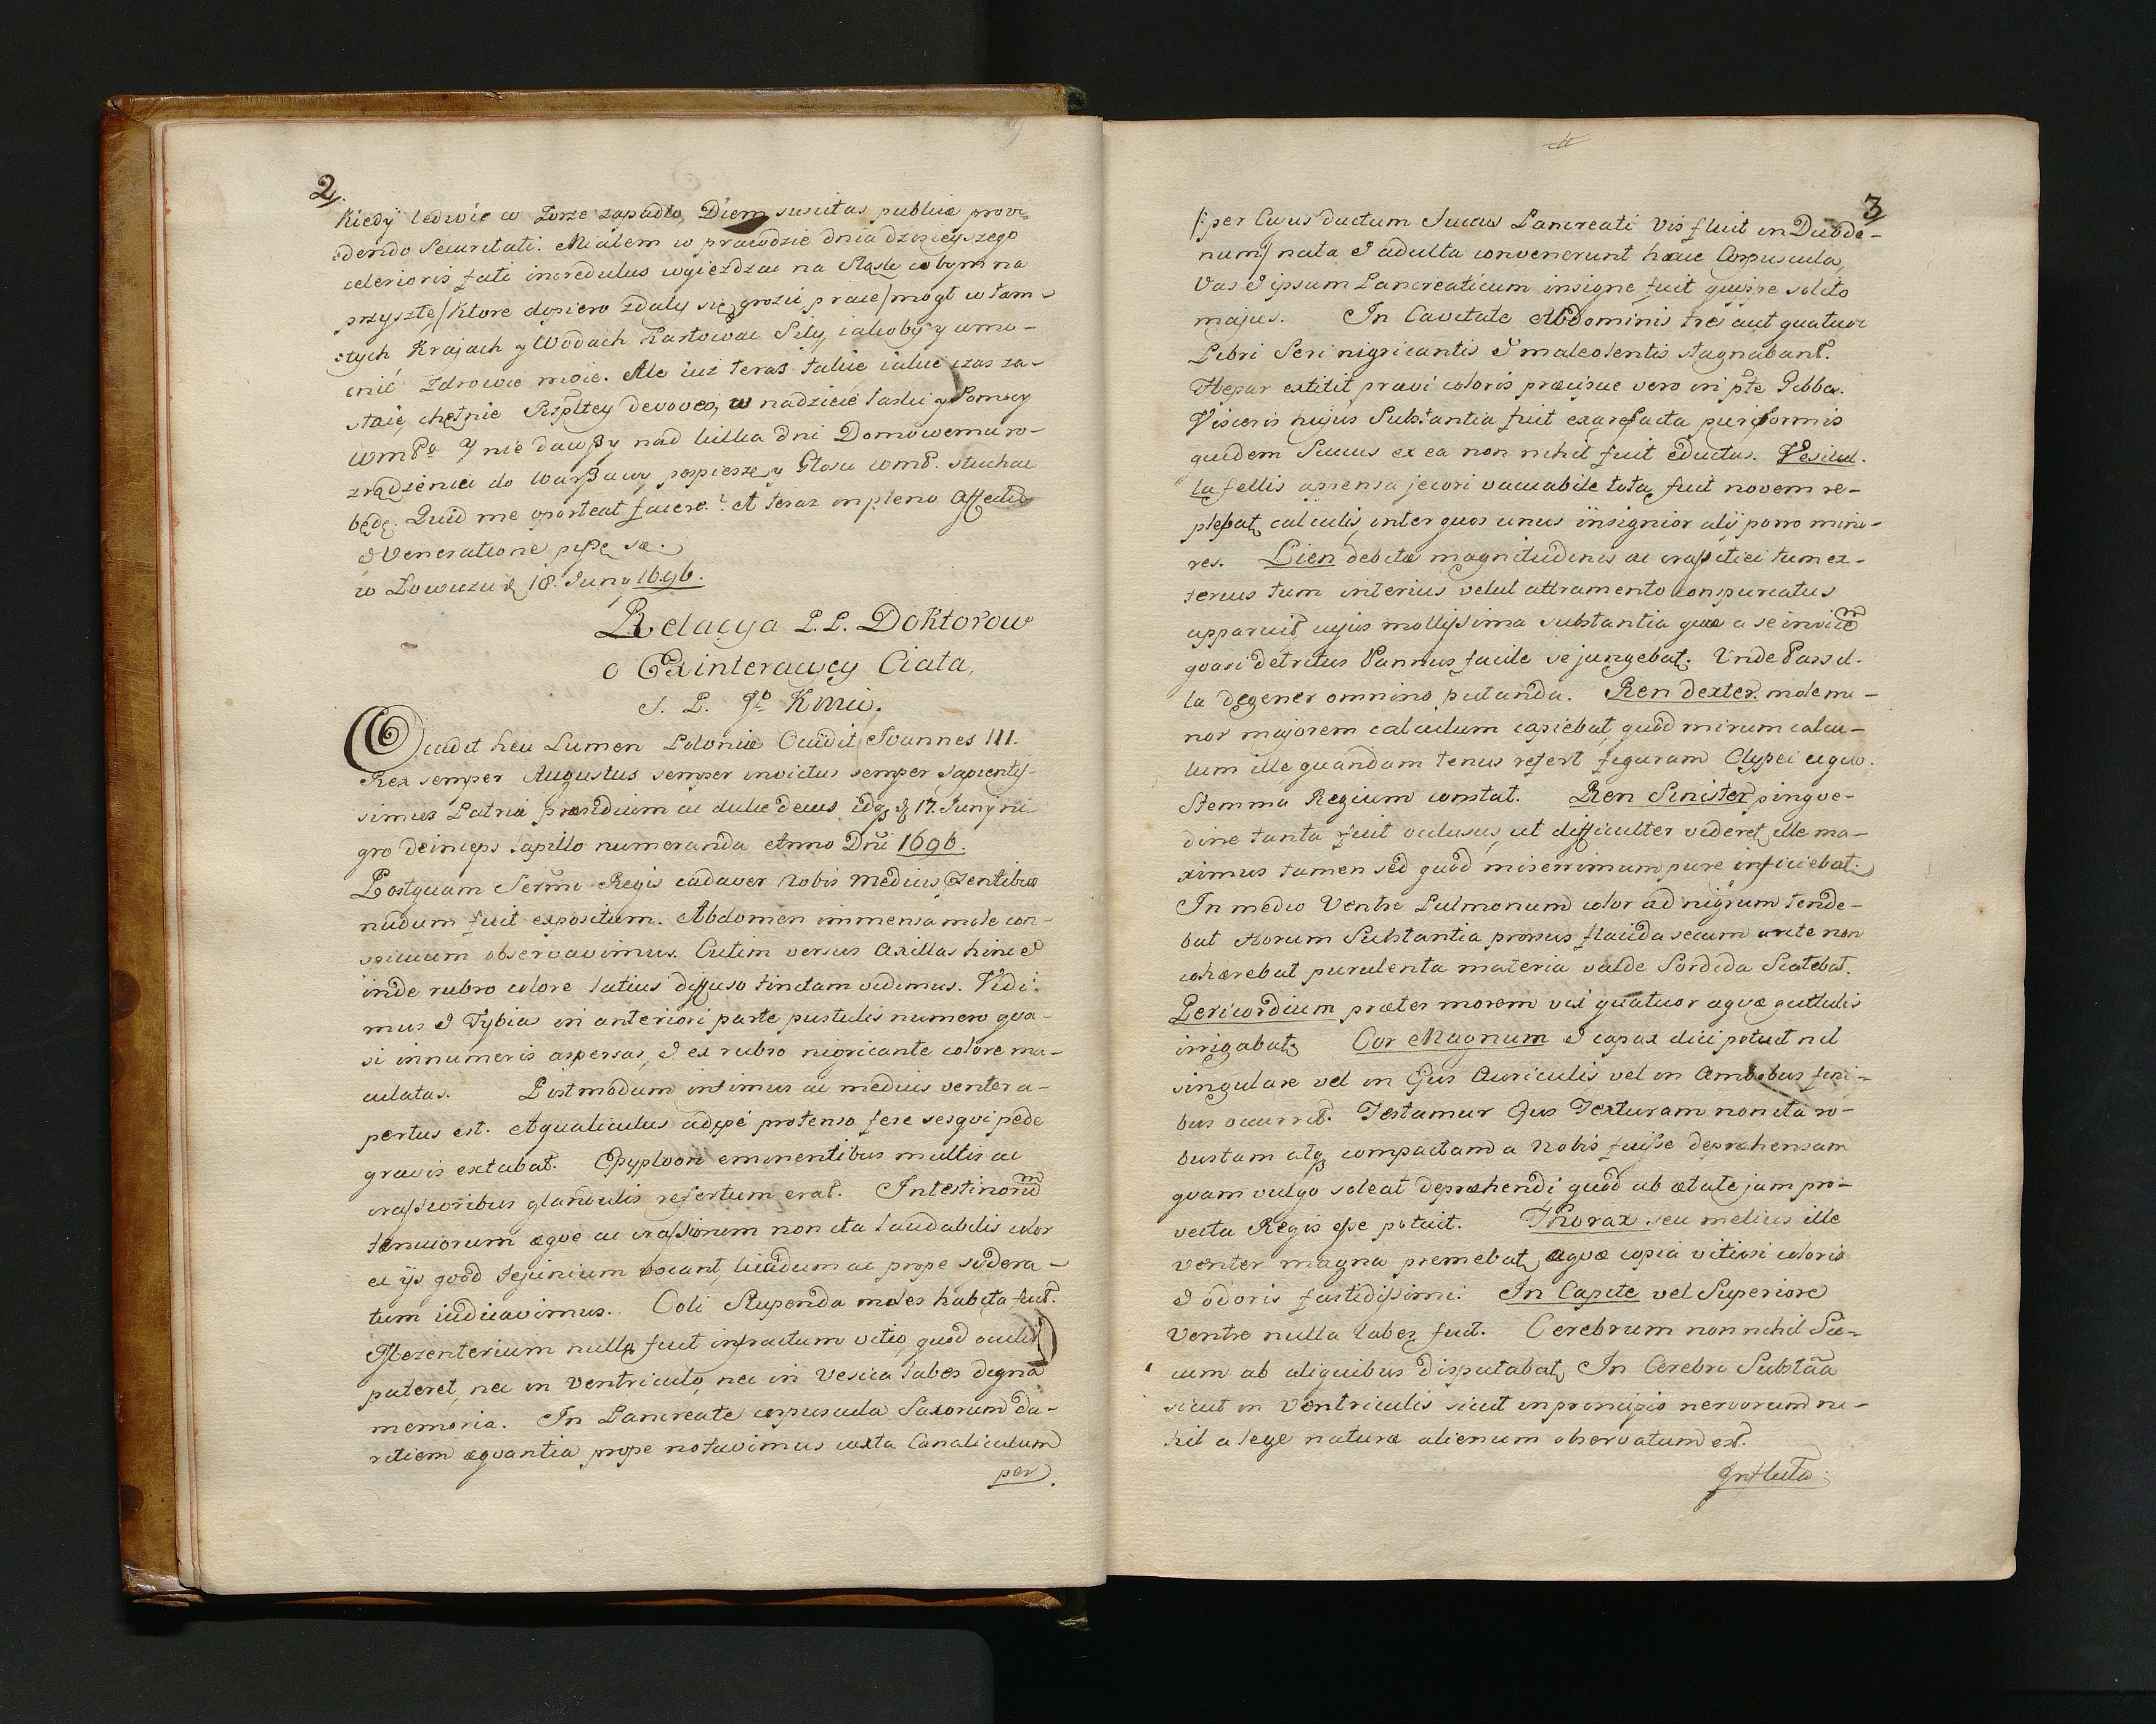 2.
Kiedÿ ledwie w Zorze zapadło, Diem suscitas publicæ provi-
dendo Securitati. Miałem w prawdzie dnia dzisieyszego
celerioris fati incredulus wyieżdzac na Sląsk cobym na
przyszłe /Ktore dopiero zdały się grozić prace/ mogł w tam-
tych Krajach y Wodach Ratować Siły, iakoby y umo-
cnić Zdrowie moie. Ale iuz teraz takie, iakie czas za-
staie, chętnie Rzpltey devoveo, w nadzieie łaski y Pomocy
WmPa Y nie dawszy nad kilka dni Domowemu ro-
zrządzeniu do Warszawy pospieszę y Głosu WmP. słuchac
będę. Quid me oporteat facere? et teraz in pleno Affectu
& Veneratione pisze się.
w Łowiczu d 18. Juny 1696.
Relacya P.P. Doktorow
o Exinteracyey Ciała,
S. P. Jo Kmci.
Occidit heu Lumen Poloniæ Occidit Joannes III.
Rex semper Augustus semper invictus semper Sapientis-
simus Patriæ præsidium ac dulce decus idq d 17. Junij ni-
gro deinceps Lapillo numeranda Anno Dni 1696.
Postquam Sermi Regis cadaver nobis Medicis Pzentibus
nudum fuit expositum. Abdomen immensa mole con-
spicuum observavimus. Cutim versus Axillas hinc &
inde rubro colore latius diffuso tinctam vidimus. Vidi-
mus & Tybias in anteriori parte pustulis numero qva-
si innumeris aspersas, & ex rubro nigricante colore ma-
culatas. Postmodum infimus ac medius venter a-
pertus est. Aqualiculus adipe protenso fere sesqvi pede
gravis extabat. Epyploon eminentibus multis ac
crassioribus glandulis refertum erat. Intestinorum
tenuiorum æqve ac crassiorum non ita laudabilis color
ac ijs qvod Jejunium vocant, lividum ac prope sydera-
tum iudicavimus. Coli Stupenda moles habita fuit.
Mezenterium nullo fuit infractum vitio, qvod oculis
pateret, nec in Ventriculo, nec in Vesica labes digna
memoria. In Pancreate corpuscula Saxorum du-
ritiem æqvantia prope notavimus iuxta Canaliculum
per
3
/:per Cujus ductum Succus Pancreati Vis fluit in Duode-
num/ nata & adulta convenerunt hæc Corpuscula,
Vas & ipsum Pancreaticum insigne fuit quippe solito
majus. In Cavitate Abdominis tres aut quatuor
Libri Seri nigricantis & maleolentis stagnabant.
Hepar extitit pravi coloris præcipue vero in pte Gibba.
Visceris hujus Substantia fuit exarefacta puriformis
quidem Succus ex ea non nihil fuit eductus. Vesicul-
la fellis appensa jecori vacuabile tota fuit novem re-
plebat calculis, inter quos unus insignior alij porro mino-
res. Lien debitæ magnitudinis ac crassitiei tum ex-
terius tum interius velut attramento conspurcatus
apparuit, cujus mollissima substantia quæ a se invicem
qvasi detritus Pannus facile sejungebat. Unde Parcel-
la degener omnino putanda. Ren dexter mole mi-
nor majorem calculum capiebat, qvod mirum calcu-
lum ille quandam tenus refert figuram Clypei e qvo
Stemma Regium constat. Ren Sinister pingve-
dine tanta fuit occlusus, ut difficulter videret, ille ma-
ximus tamen sed qvod miserrimum pure inficiebat.
In medio Ventre Pulmonum color ad nigrum tende-
bat Horum Substantia prorsus flaccida secum arcte non
cohærebat purulenta materia valde Sordida Scatebat.
Pericordium præter morem vix quatuor aqvæ guttulis
irrigabat. Cor Magnum & capax dici potuit nil
singulare vel in Ejus Auriculis vel in Ambobus fini-
bus occurrit. Testamur Ejus Texturam non ita ro-
bustam atq compactam a Nobis fuisse deprehensam
qvam vulgo soleat deprehendi, qvod ab ætate jam pro-
vecta Regis esse potuit. Thorax seu melius ille
venter magna premebat, aqvæ copia vitiosi coloris
& odoris fastidissimi. In Capite vel Superiore
Ventre nulla labes fuit. Cerebrum nonnihil Sic-
cum ab aliquibus disputabat, In Cerebri Substaa
sicut in Ventriculis sicut in principio nervorum ni-
hil a lege naturæ alienum observatum est.